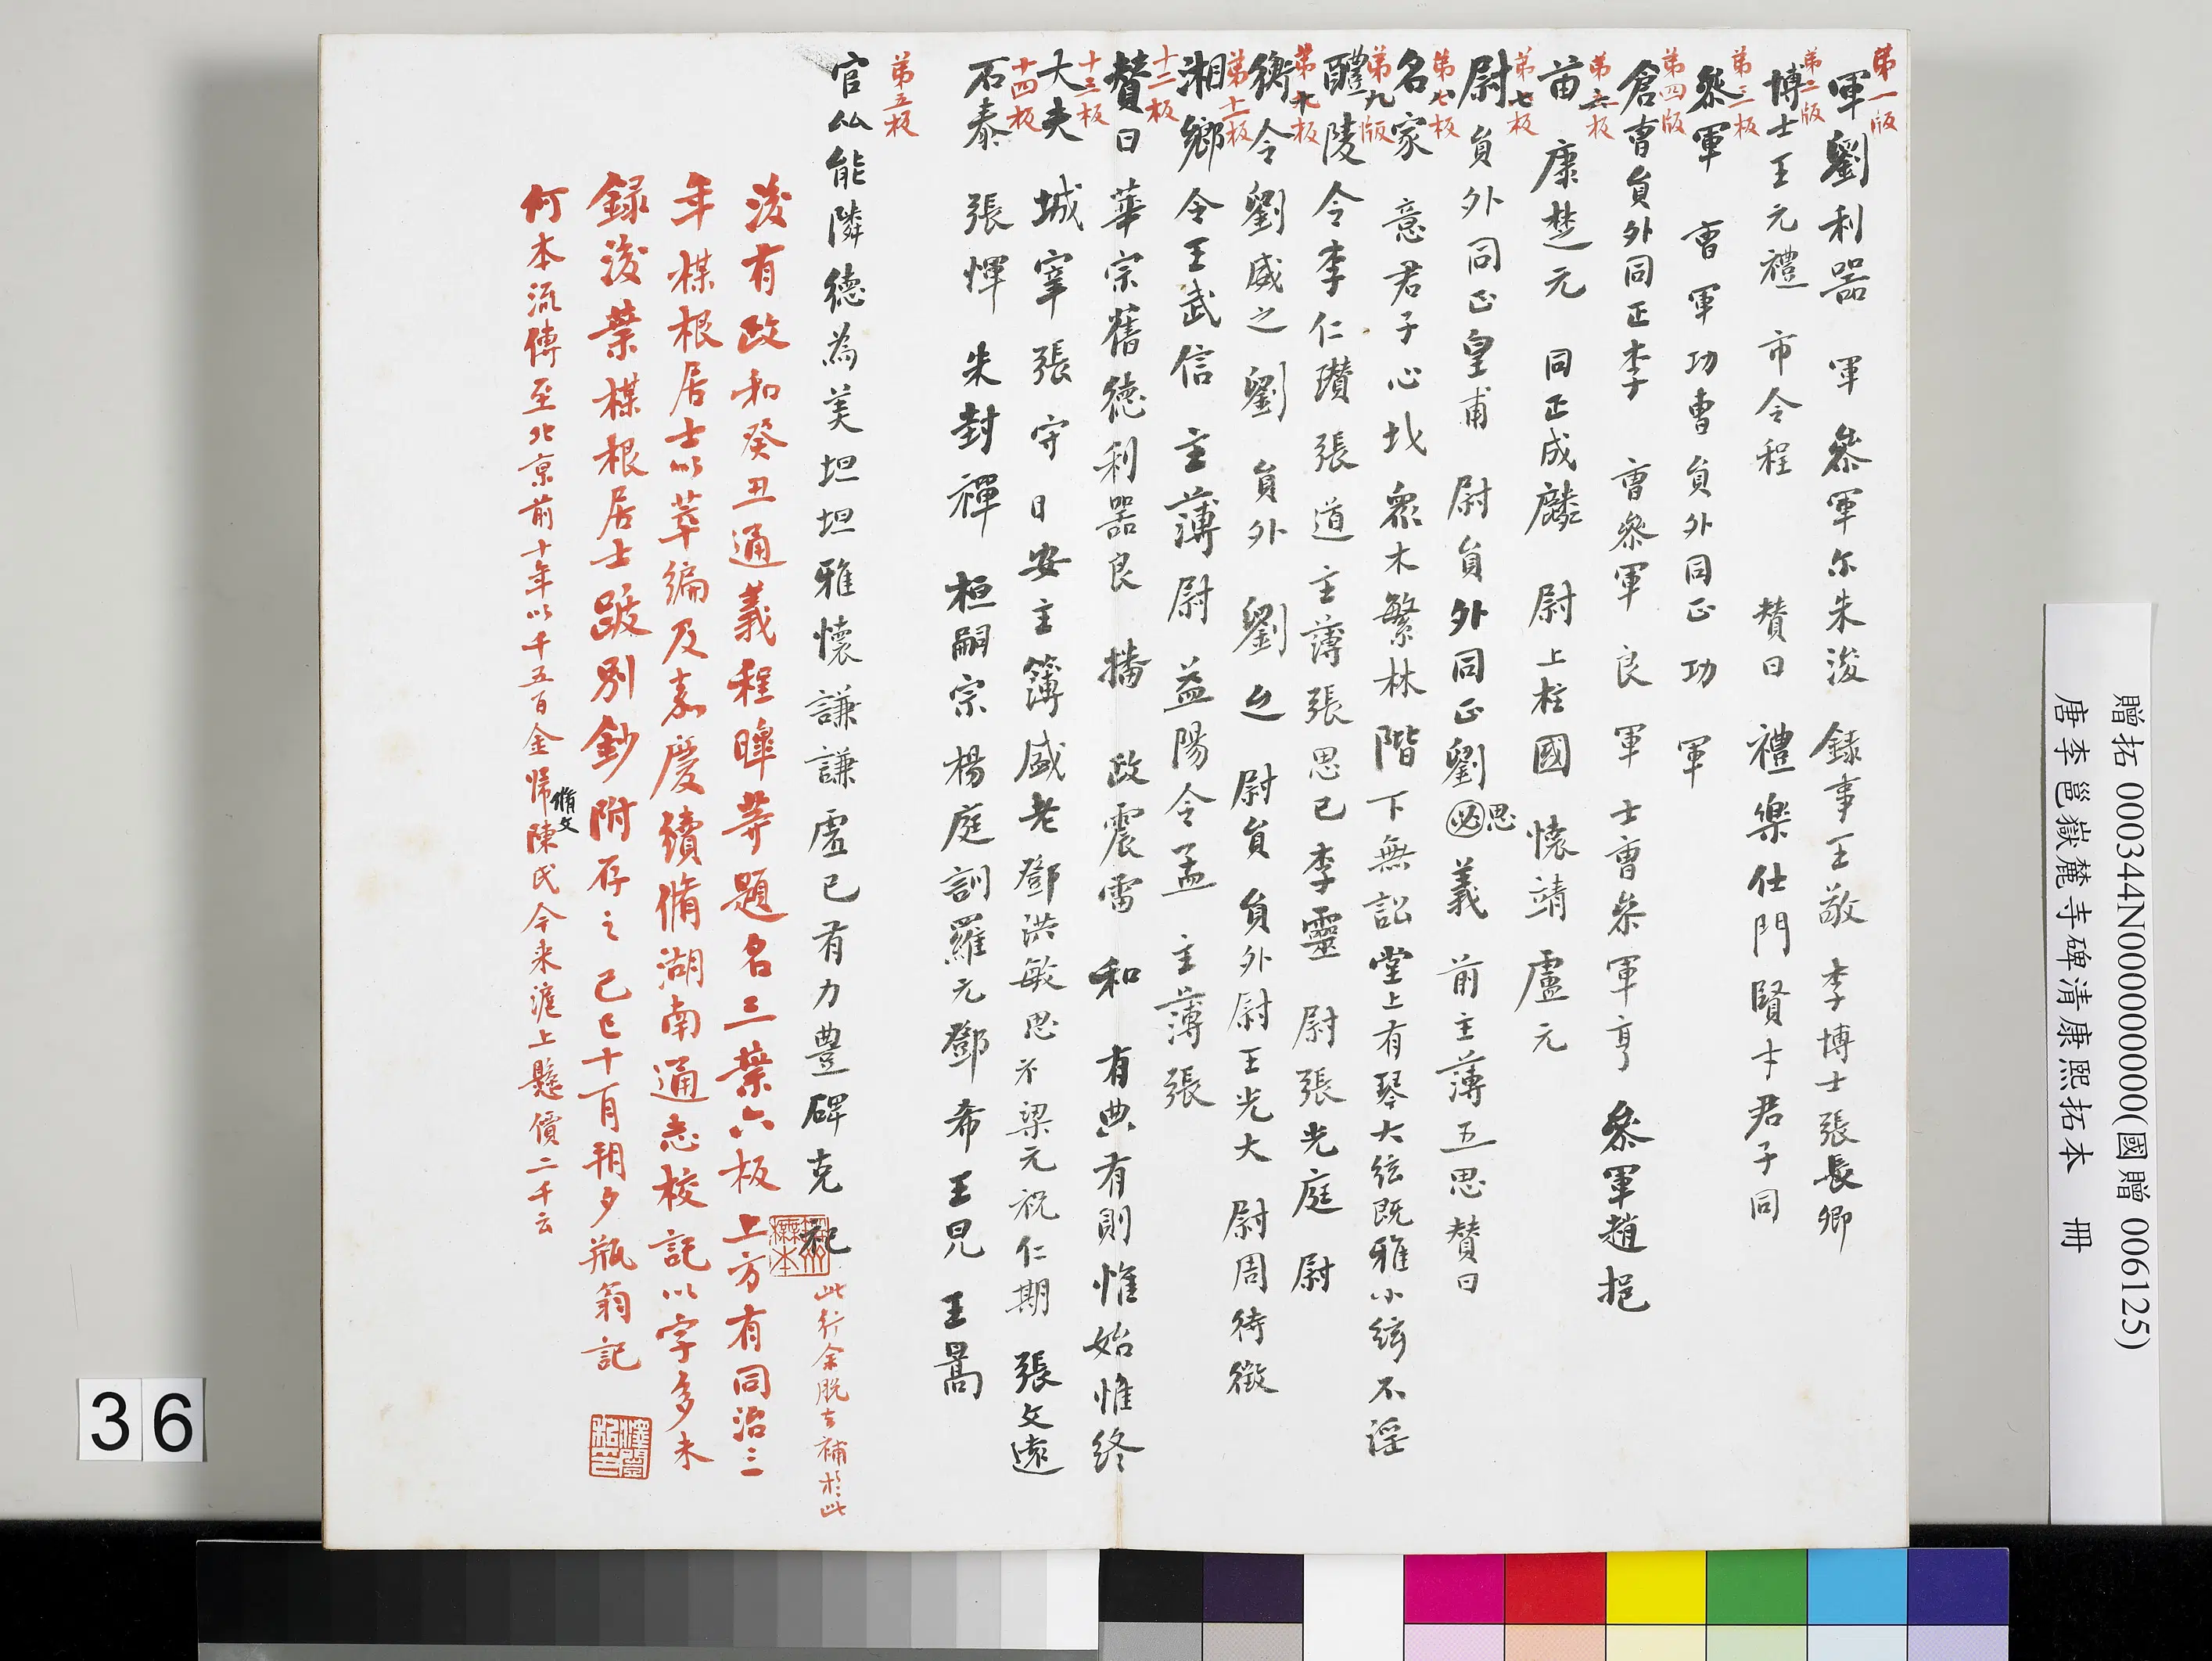 第一版
軍劉利器 軍 叅軍尓朱浚 錄事王敬 李博士張長卿
第二版
博士王元禮 市令程 賛曰 禮樂仕門賢才君子同
第三板
叅軍 曹軍功曹員外同正 功 軍
第四版
倉曹員外同正李 曹叅軍 良 軍 士曹叅軍亨 叅軍趙挹
第六板
苗 康楚元 同正成麟 尉上柱國 懷靖 盧元
第七板
尉 員外同正皇甫 尉員外同正劉思義 前主薄五思 賛曰
第八板
名家 意君子心圠衆木繁林階下無訟堂上有琴大弦既雅小絃不淫
第九版
醴陵令李仁瓚 張道 主薄張思已 李靈 尉張光庭 尉
第十板
衡令劉咸之 劉 員外 劉之 尉員 員外尉王光大 尉周待徵
第十一板
湘鄉令王武信 主薄 尉 益陽令孟 主薄張
十二板
賛曰 華宗舊德利器良 播 政震雷 和 有典有則惟始惟終
十三板
大夫 城宰張守 日安主簿盛老 鄧洪敏思 不 梁元祝仁期 張文遠
十四板
石泰 張惲 朱封禪 桓嗣宗 楊庭訓 羅元 鄧希 王兄 王暠
第五板
官仙能隣德為美坦坦雅懷謙謙虛已有力豊碑克 祀
此行余脫去補於此
後有政和癸丑通義程暐等題名三葉六板上方有同治三
年楳根居士以萃編及嘉慶續脩湖南通志校記以字多未
錄後葉楳根居士跋別鈔附存之己巳十一月朔夕瓶翁記
何本流傳至北京前十年以千五百金帰脩文陳氏今来滬上懸價二千云
36
贈拓 000344N000000000(國贈 006125)
唐李邕嶽麓寺碑清康熙拓本 冊